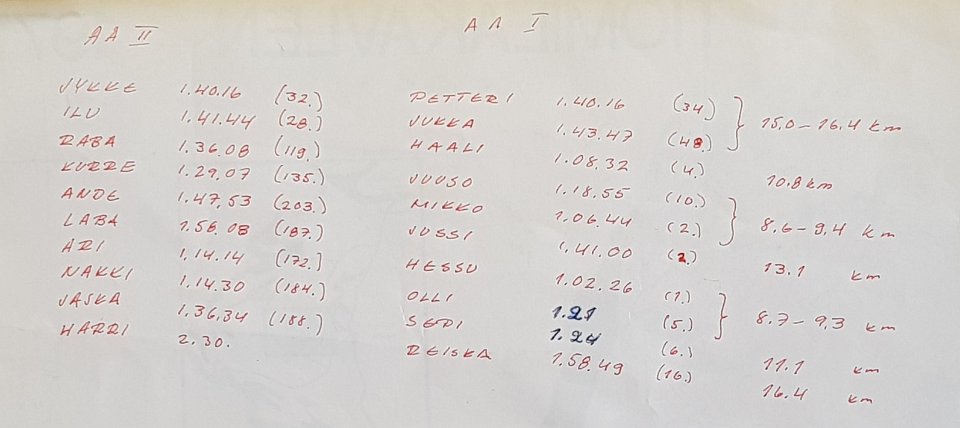 AA II
JYKKE 1.40.16 (32.)
ILU 1.41.44 (28.)
RABA 1.36.08 (119.)
KURRE 1.29.07 (135.)
ANDE 1.47.53 (203.)
LABA 1.56.08 (187.)
ARI 1.14.14 (172.)
NAKKI 1.14.30 (184.)
JASKA 1.36.34 (188.)
HARRI 2.30.
AA I
PETTERI 1.40.16 (34)
JUKKA 1.43.47 (48.)
15,0 – 16,4 km
HAALI 1.08.32 (4.)
10,8 km
JUUSO 1.18.55 (10.)
MIKKO 1.06.44 (2.)
8,6 – 9,4 km
JUSSI 1.41.00 (2.)
13.1 km
HESSU 1.02.26 (1.)
OLLI 1.21 (5.)
8.7 – 9,3 km
SEPI 1.24 (6.)
11.1 km
REISKA 1.58.49 (16.)
16.4 km